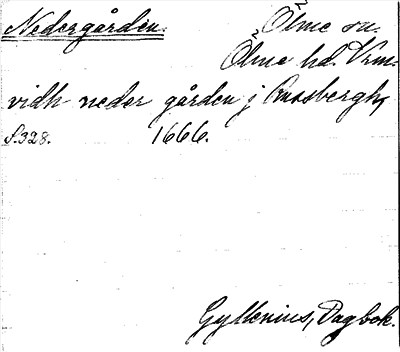 Nedergården. Ölme sn.
Ölme hd. Vrm.
vidh neder gården j Rassbergh,
S. 328. 1666.
Gyllenius, Dagbok.